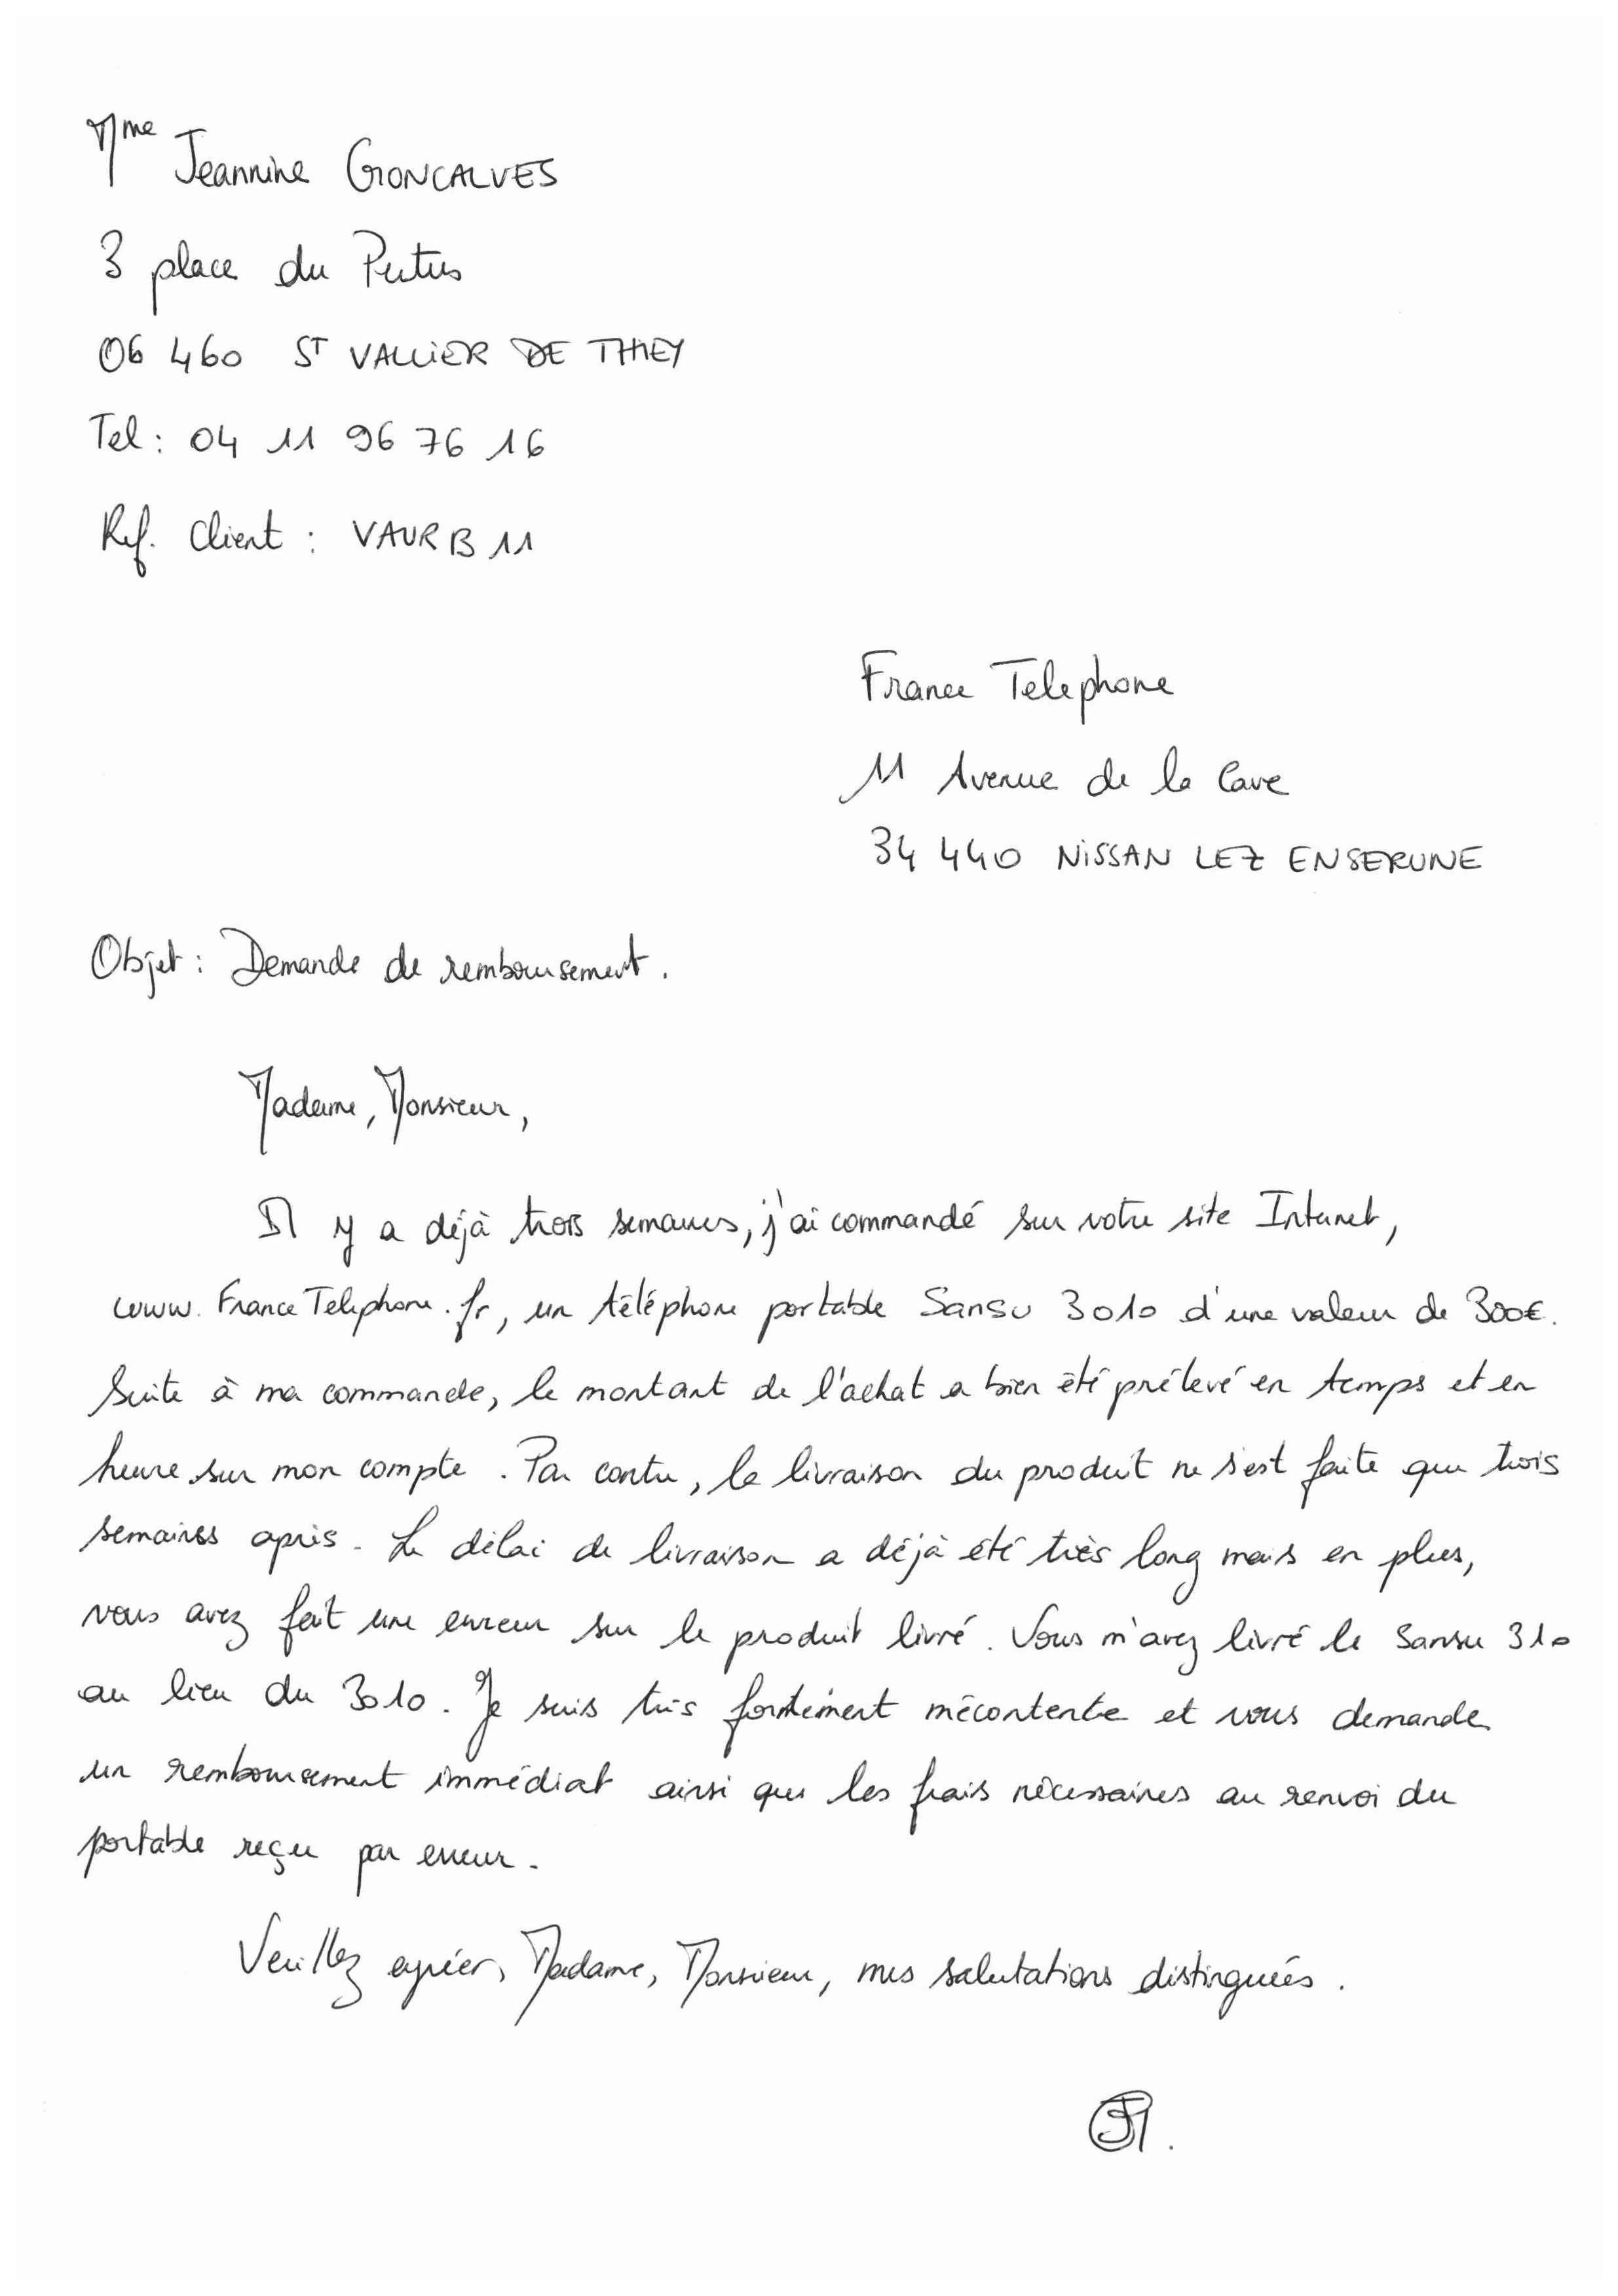 Mme Jeannine GONCALVES
3 place du Pertus
06 460 ST VALLIER DE THIEY
Tel : 04 11 96 76 16
Ref. Client : VAURB 11
France Telephone
11 Avenue de la Cave
34 440 NISSAN LEZ ENSERUNE
Objet : Demande de remboursement.
Madame, Monsieur,
Il y a déjà trois semaines, j'ai commandé sur votre site Internet,
www.FranceTelephone.fr, un téléphone portable Sansu 3010 d'une valeur de 300€.
Suite à ma commande, le montant de l'achat a bien été prélevé en temps et en
heure sur mon compte. Par contre, la livraison du produit ne s'est faite que trois
semaines après. Le délai de livraison a déjà été très long mais en plus,
vous avez fait une erreur sur le produit livré. Vous m'avez livré le Sansu 310
au lieu du 3010. Je suis très fortement mécontente et vous demande
un remboursement immédiat ainsi que les frais nécessaires au renvoi du
portable reçu par erreur.
Veuillez agréer, Madame, Monsieur, mes salutations distinguées.